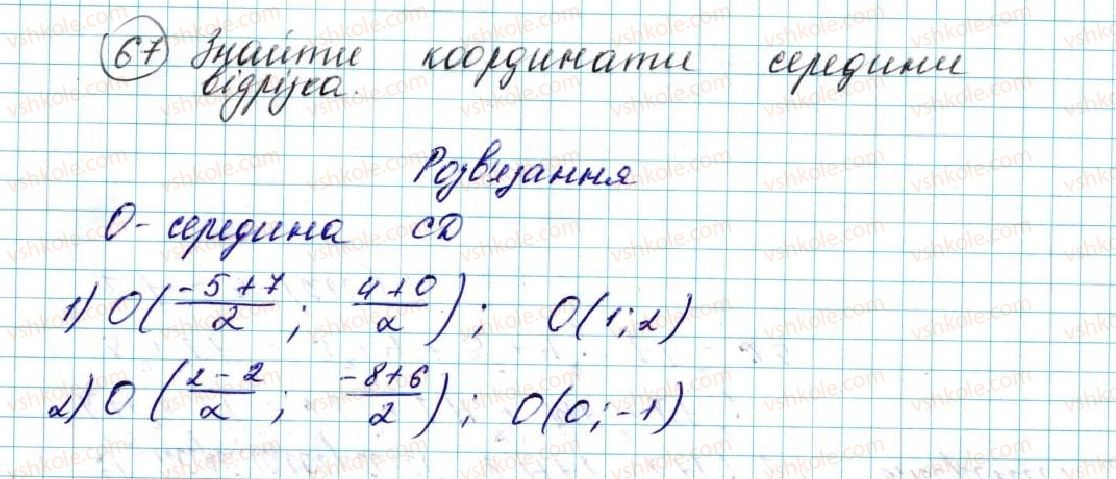 67 Знайти координати середини
відрізка.
Розв'язання
O - середина CD
1) O(\frac{-5+7}{2}; \frac{4+0}{2}); O(1;2)
2) O(\frac{2-2}{2}; \frac{-8+6}{2}); O(0;-1)
vshkole.com